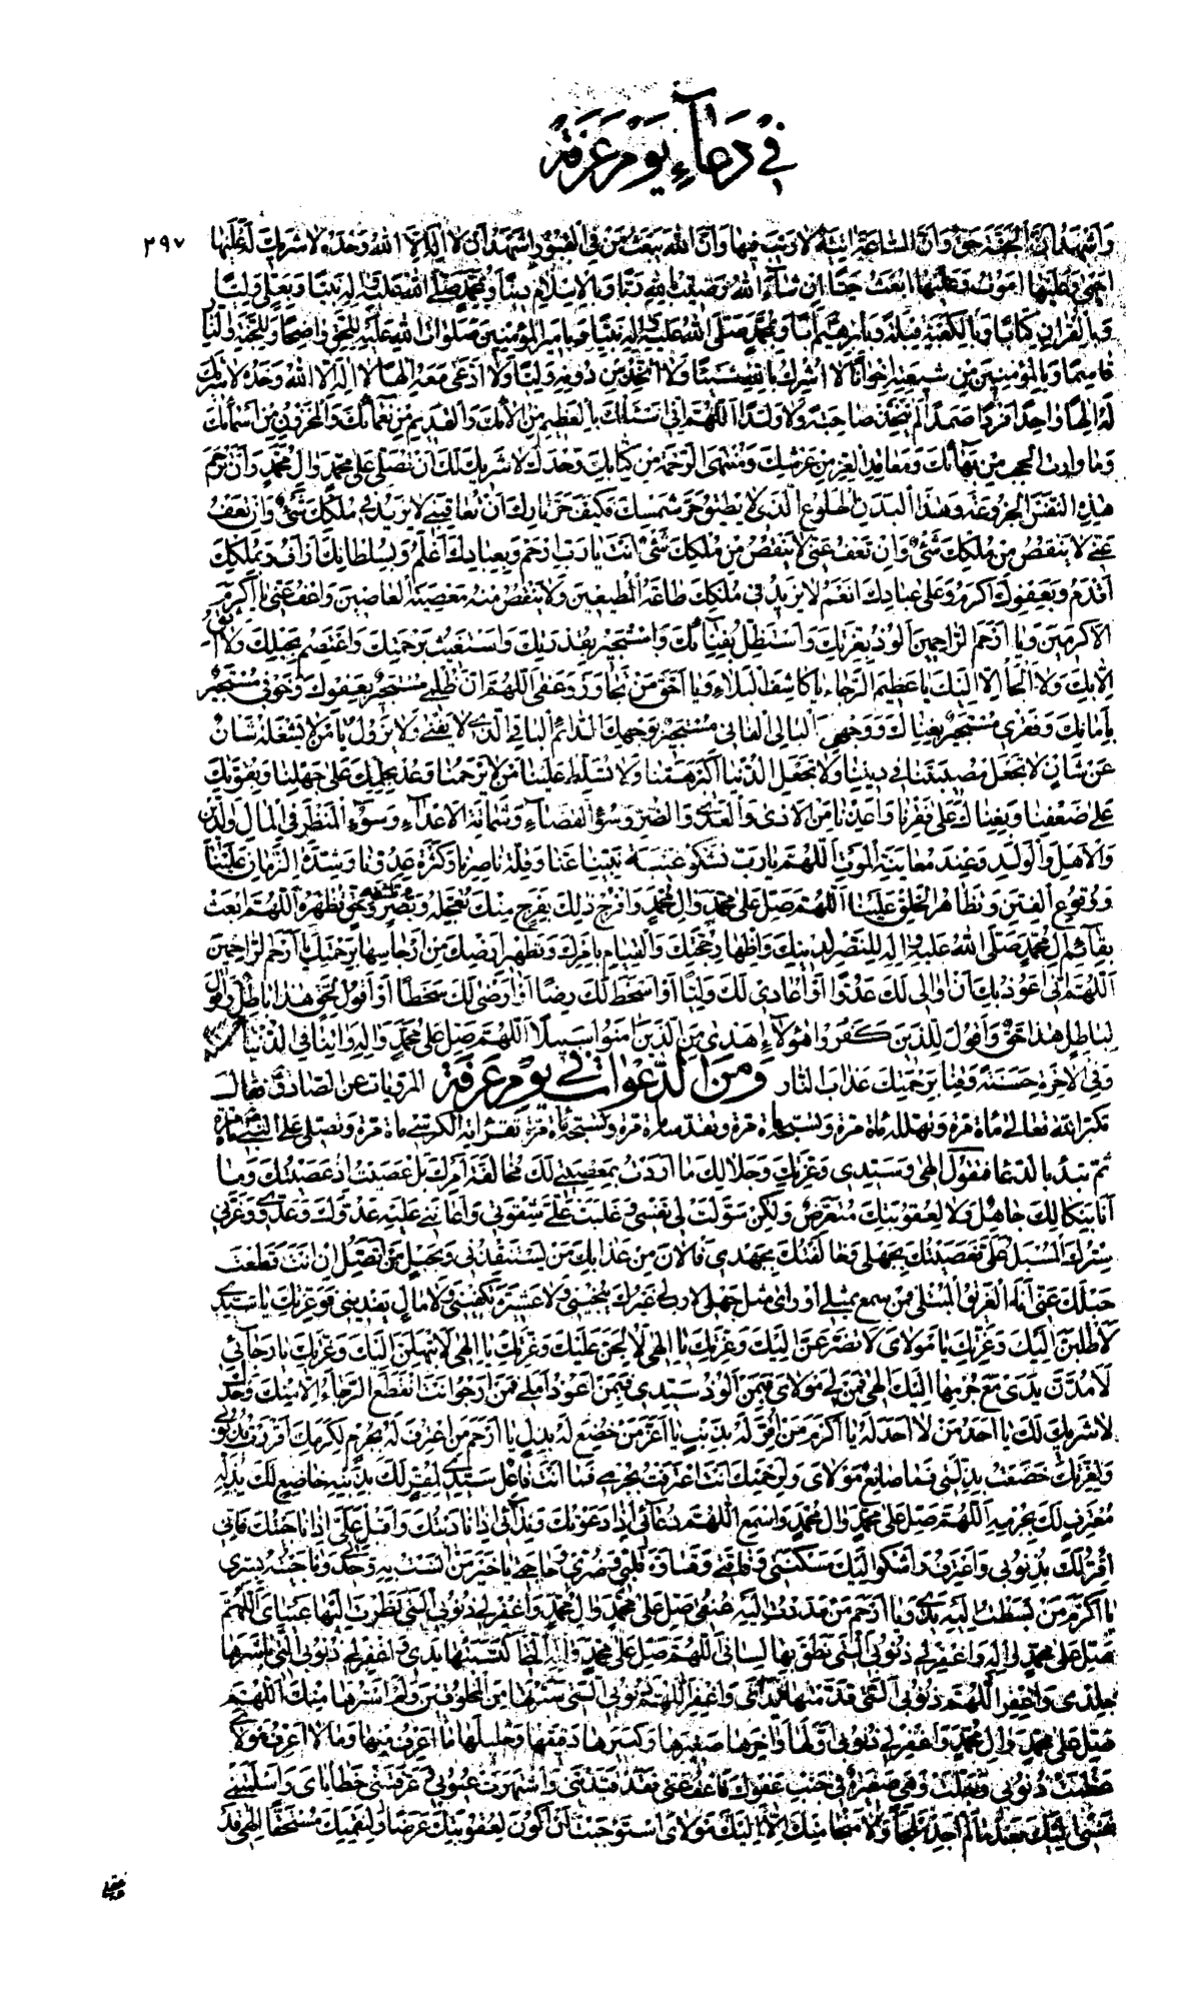 في دعاء يوم عرفة
٢٩٧
وأشهد أن الجنة حق وأن الساعة آتية لا ريب فيها وأن الله يبعث من في القبور أشهد أن لا إله إلا الله وحده لا شريك له
إن شاء الله رضيت بالله ربا وبالإسلام دينا وبمحمد صلى الله عليه وآله نبيا وبعلي وليا
وبالقرآن كتابا وبالكعبة قبلة وبإبراهيم أبا وبمحمد صلى الله عليه وآله نبيا وبأمير المؤمنين صلوات الله عليه للحق واضحا وللجنة والنار
قاسما وبالمؤمنين من شيعته إخوانا لا أشرك بالله شيئا ولا أتخذ من دونه وليا ولا أدعي معه إلها لا إله إلا الله وحده لا شريك
له إلها واحدا فردا صمدا لم يتخذ صاحبة ولا ولدا اللهم إني أسئلك بالعظيم من آلائك والقديم من نعمائك والمخزون من أسمائك
وما وارت الحجب من بهائك ومعاقد العز من عرشك ومنتهى الرحمة من كتابك وحدك لا شريك لك أن تصلي على محمد وآل محمد وأن ترحم
هذه النفس الجزوعة وهذا البدن الهلوع الذي لا يطيق حر شمسك فكيف حر نارك أن تعاقبني لا يزيد في ملكك شيء وأن تعف
عني لا ينقص من ملكك شيء وإن تعف عني لا ينقص من ملكك شيء أنت يا رب أرحم وبعبادك أعلم وبسلطانك أرأف وبملكك
أقدم وبعفوك أكرم وعلى عبادك أنعم لا يزيد في ملكك طاعة المطيعين ولا ينقص منه معصية العاصين واعف عني يا أكرم
الأكرمين ويا أرحم الراحمين ألوذ بعزتك وأستظل بفنائك وأستجير بقدرتك وأستغيث برحمتك وأعتصم بحبلك ولا أثق
إلا بك ولا ألجأ إلا إليك يا عظيم الرجاء يا كاشف البلاء ويا أحق من تجاوز وعفى اللهم إن ظلمي مستجير بعفوك وخوفي مستجير
بأمانك وفقري مستجير بغناك ووجهي البالي الفاني مستجير بوجهك الدائم الباقي الذي لا يفنى ولا يزول يا من لا يشغله شأن
عن شأن لا تجعل مصيبتنا في ديننا ولا تجعل الدنيا أكبر همنا ولا تسلط علينا من لا يرحمنا وعد بحلمك على جهلنا وبقوتك
على ضعفنا وبغناك على فقرنا وأعذنا من الأذى والعدى والضر وسوء القضاء وشماتة الأعداء وسوء المنظر في المال والدين
والأهل والولد وعند معاينة الموت اللهم يا رب نشكو غيبة نبينا عنا وقلة ناصرنا وكثرة عدونا وشدة الزمان علينا
ووقوع الفتن وتظاهر الخلق علينا اللهم صل على محمد وآل محمد وافرج ذلك بفرج منك تعجله ونصر وحق تظهره اللهم ابعث
بقائم آل محمد صلى الله عليه وآله للنصر لدينك وإظهار حجتك والقيام بأمرك وتطهير أرضك من أرجاسها برحمتك يا أرحم الراحمين
اللهم إني أعوذ بك أن أوالي لك عدوا أو أعادي لك وليا أو أسخط لك رضا أو أرضى لك سخطا أو أقول لحق هذا باطل أو أقول
لباطل هذا حق وأقول للذين كفروا هؤلاء أهدى من الذين آمنوا سبيلا اللهم صل على محمد وآله وآتنا في الدنيا
وفي الآخرة حسنة وقنا برحمتك عذاب النار ومن الدعوات في يوم عرفة المرويات عن الصادق
تكبر الله تعالى مأة مرة وتهلله مأة مرة وتسبحه مأة مرة وتقدسه مأة مرة تقرء آية الكرسي مأة مرة وتصلي على النبي مأة مرة
ثم تبدء بالدعا فتقول إلهي وسيدي وعزتك وجلالك ما أردت بمعصيتي لك مخالفة أمرك بل عصيت إذ عصيتك وما
أنا بنكالك جاهل ولا لعقوبتك متعرض ولكن سولت لي نفسي وغلبت علي شقوتي وأعانني عليه عدوك وعدوي وغرني
سترك المسبل علي فعصيتك بجهلي وخالفتك بجهدي فالآن من عذابك من يستنقذني وبحبل من أتصل إن أنت قطعت
حبلك عني أنا الغريق المبتلى فمن سمع بمثلي أو رأى مثل جهلي لا رب لي غيرك ينجيني ولا عشيرة تكفيني ولا مال يفديني فوعزتك يا سيدي
لأطلبن إليك وعزتك يا مولاي لأتضرعن إليك وعزتك يا إلهي لألحن عليك وعزتك يا إلهي لأبتهلن إليك وعزتك يا رجائي
لأمدن يدي مع جرمها إليك إلهي فمن لي مولاي فبمن ألوذ سيدي فبمن أعوذ أملي فمن أرجو أنت أنت انقطع الرجاء إلا منك وحدك
لا شريك لك يا أحد من لا أحد له يا أكرم من أقر له بذنب يا أعز من خضع له بذل يا أرحم من اعترف له بجرم لكرمك أقررت بذنوبي
ولعزتك خضعت بذلتي فما صانع مولاي ولرحمتك أنت اعترفت بجرمي فما أنت فاعل سيدي لمقر لك بذنبه خاضع لك بذله
معترف لك بجرمه اللهم صل على محمد وآل محمد واسمع اللهم دعائي إذا دعوتك وندائي إذا ناديتك وأقبل علي إذا ناجيتك فإني
أقر لك بذنوبي وأعترف وأشكو إليك مسكنتي وفاقتي وقساوة قلبي وضري وحاجتي يا خير من آنست به وحدتي وناجيته بسري
يا أكرم من بسطت إليه يدي ويا أرحم من مددت إليه عنقي صل على محمد وآل محمد واغفر لي ذنوبي التي نظرت إليها عيناي اللهم
صل على محمد وآله واغفر لي ذنوبي التي نطق بها لساني اللهم صل على محمد وآله التي اكتسبتها يدي واغفر لي ذنوبي التي باشرها
جلدي واغفر اللهم ذنوبي التي قدمتها يداي واغفر اللهم ذنوبي التي سترتها من المخلوقين ولم أسترها منك اللهم
صل على محمد وآل محمد واغفر لي ذنوبي أولها وآخرها صغيرها وكبيرها دقيقها وجليلها ما أعرف منها وما لا أعرف مولاي
عظمت ذنوبي وجلت وهي صغيرة في جنب عفوك فاعف عني فقد قيدتني واشتهرت عيوبي وغرقتني خطاياي وأسلمتني
نفسي إليك بعد ما لم أجد ملجأ ولا منجا منك إلا إليك مولاي استوجبت أن أكون لعقوبتك عرضا ولنقمتك مستحقا إلهي قد